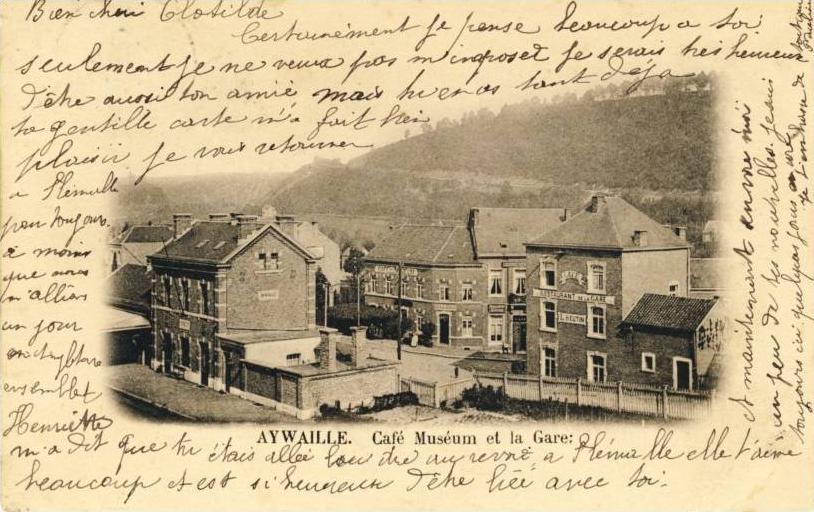 Bien cheri Clotilde
Certainement je pense beaucoup a toi
seulement je ne veux pas m'imposer je serais très heureux
d'être aussi ton amie mais tu en as tant déja
ta gentille carte m'a fait bien
plaisir je vais retourner
a Flémalle
pour toujours
a moins
que nous
n'allions
un jour
en
ensemble
Henriette
m'a dit que tu étais allée lou dre au revoir a Flémalle elle t'aime
beaucoup et est si heureuse d'être liée avec toi.
et maintenant envoie moi
un peu de tes nouvelles. je suis
toujours ici quelques jours
je t'embrasse de
CAFÉ
RESTAURANT DE LA GARE
AYWAILLE. Café Muséum et la Gare: